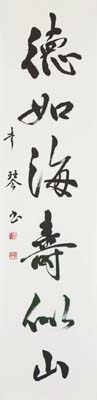 德如海壽似山
書